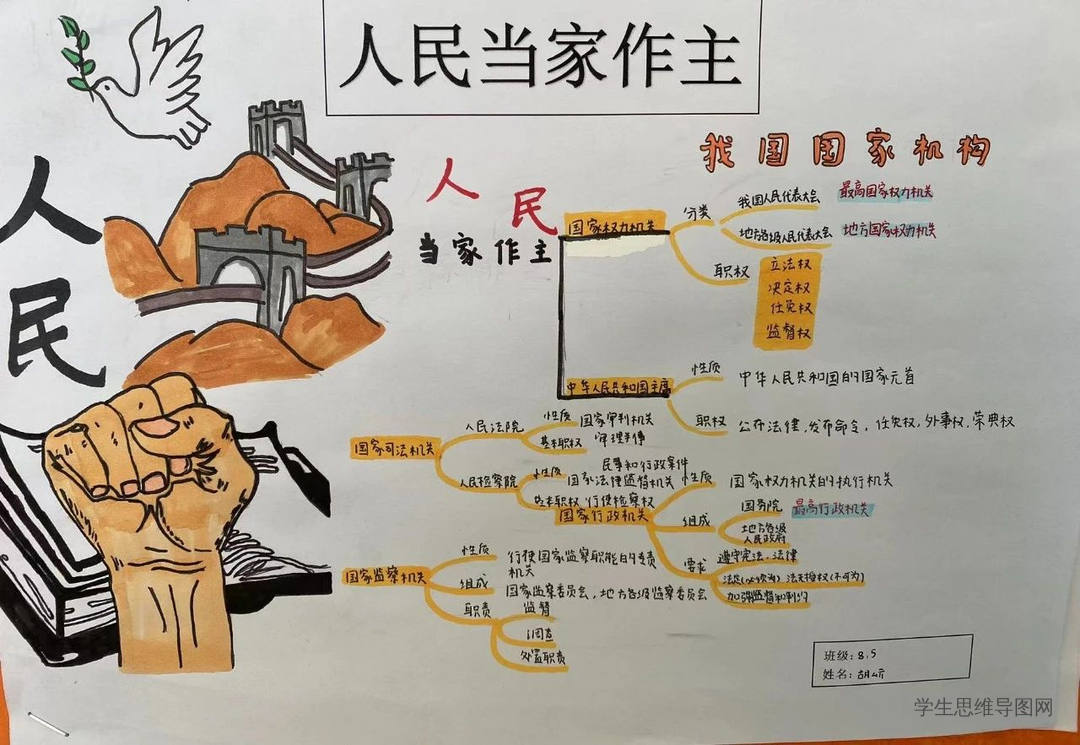 人民当家作主
人民
我国国家机构
人民
当家作主
国家权力机关
分类
我国人民代表大会 最高国家权力机关
地方各级人民代表大会 地方国家权力机关
职权
立法权
决定权
任免权
监督权
中华人民共和国主席
性质
中华人民共和国的国家元首
职权
公布法律,发布命令,任免权,外事权,荣典权
国家司法机关
人民法院
性质 国家审判机关
基本职权 审理刑事
民事和行政案件
人民检察院
性质 国家法律监督机关
基本职权 行使检察权
国家行政机关
性质
国家权力机关的执行机关
组成
国务院 最高行政机关
地方各级
人民政府
要求
遵守宪法,法律
加强监督和制约
国家监察机关
性质
行使国家监察职能的专责
机关
组成
国家监察委员会,地方各级监察委员会
职责
监督
调查
处置职责
班级:8.5
姓名:
学生思维导图网